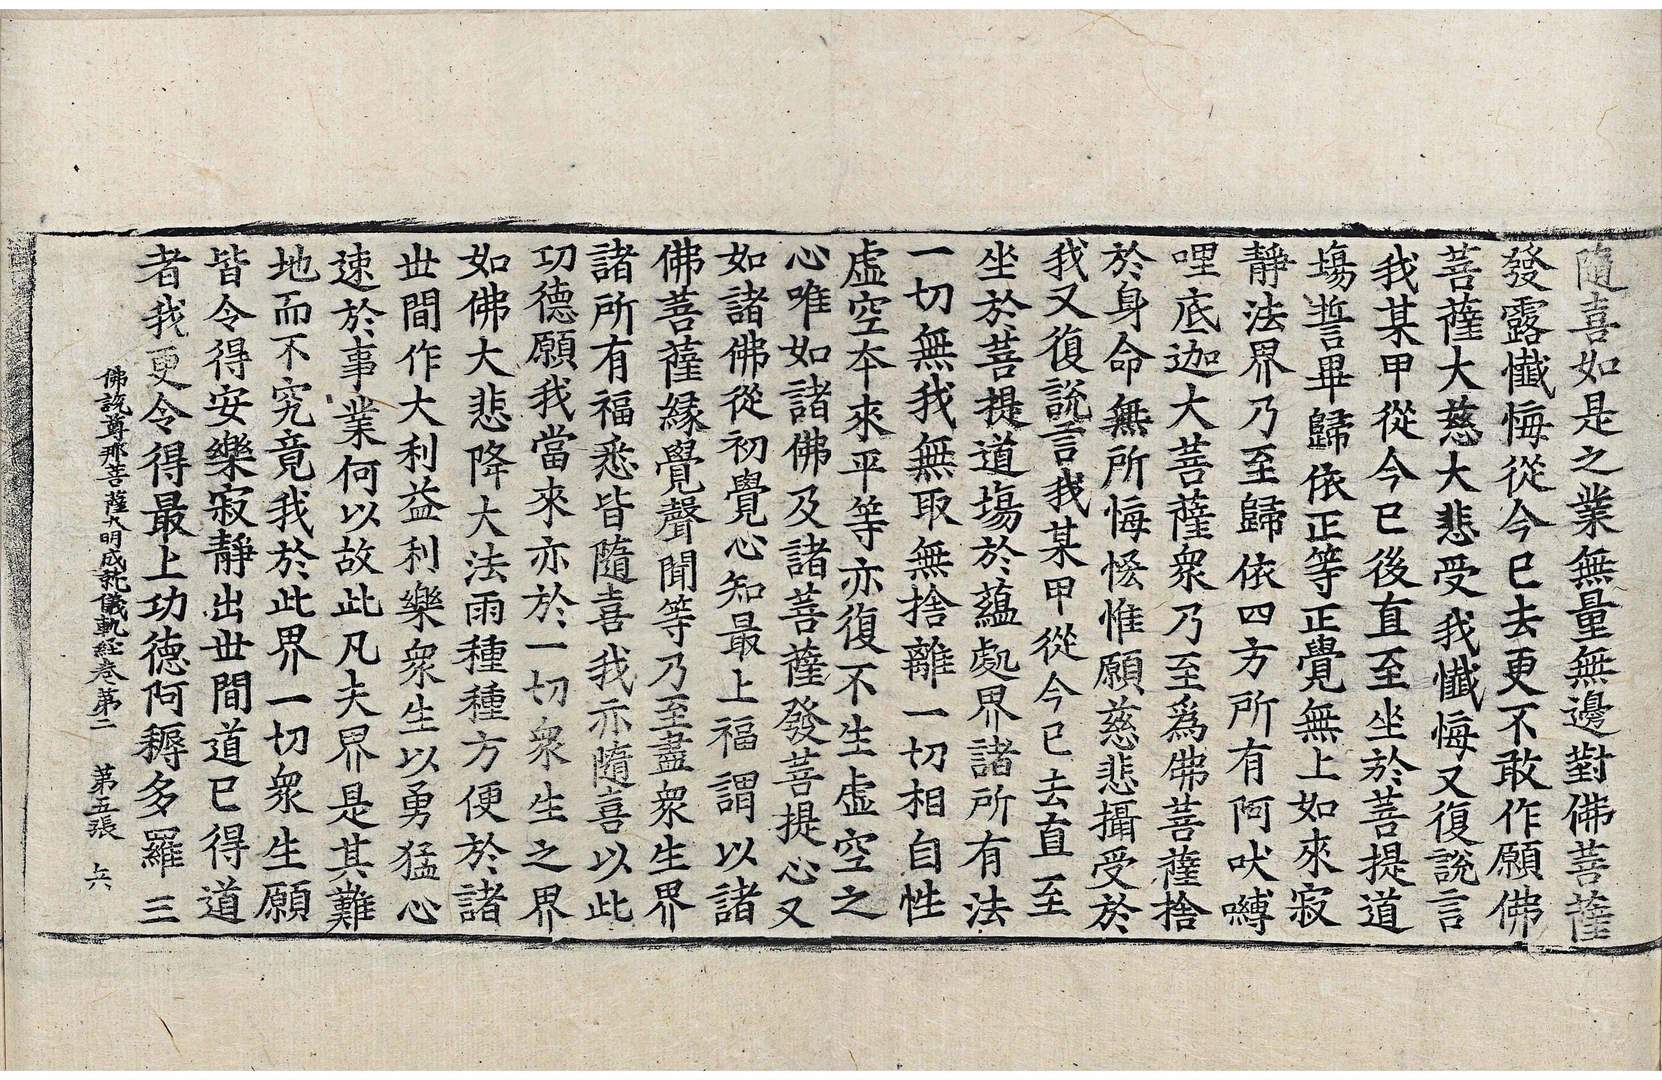 隨喜如是之業無量無邊對佛菩薩
發露懺悔從今已去更不敢作願佛
菩薩大慈大悲受我懺悔又復說言
我某甲從今已後直至坐於菩提道
場誓畢歸依正等正覺無上如來寂
靜法界乃至歸依四方所有阿吠嚩
哩底迦大菩薩衆乃至爲佛菩薩捨
於身命無所悔悋惟願慈悲攝受於
我又復說言我某甲從今已去直至
坐於菩提道場於蘊處界諸所有法
一切無我無取無捨離一切相自性
虛空本來平等亦復不生虛空之
心唯如諸佛及諸菩薩發菩提心又
如諸佛從初覺心知最上福謂以諸
佛菩薩緣覺聲聞等乃至盡衆生界
諸所有福悉皆隨喜我亦隨喜以此
功德願我當來亦於一切衆生之界
如佛大悲降大法雨種種方便於諸
世間作大利益利樂衆生以勇猛心
速於事業何以故此凡夫界是其難
地而不究竟我於此界一切衆生願
皆令得安樂寂靜出世間道已得道
者我更令得最上功德阿耨多羅三
佛說尊那菩薩大明成就儀軌経卷第二 第五張 兵